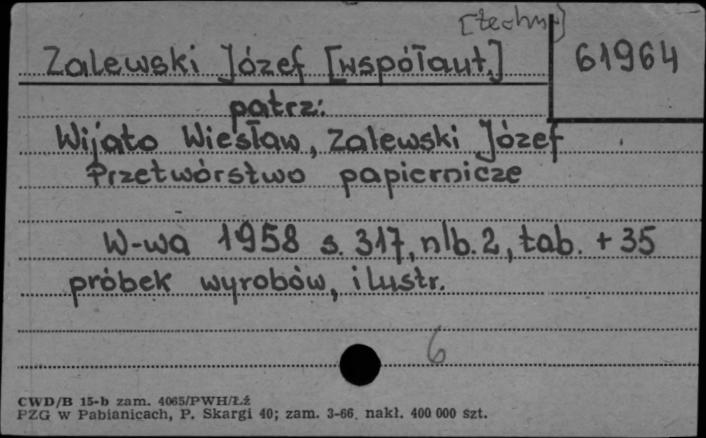 [techn.]
Zalewski Józef [współaut.] 61964
patrz:
Wijato Wiesław, Zalewski Józef
Przetwórstwo papiernicze
W-wa 1958 s. 317, nlb. 2, tab. + 35
próbek wyrobów, ilustr.
6
CWD/B 15-b zam. 4065/PWH/Łź
PZG w Pabianicach, P. Skargi 40; zam. 3-66. nakł. 400 000 szt.